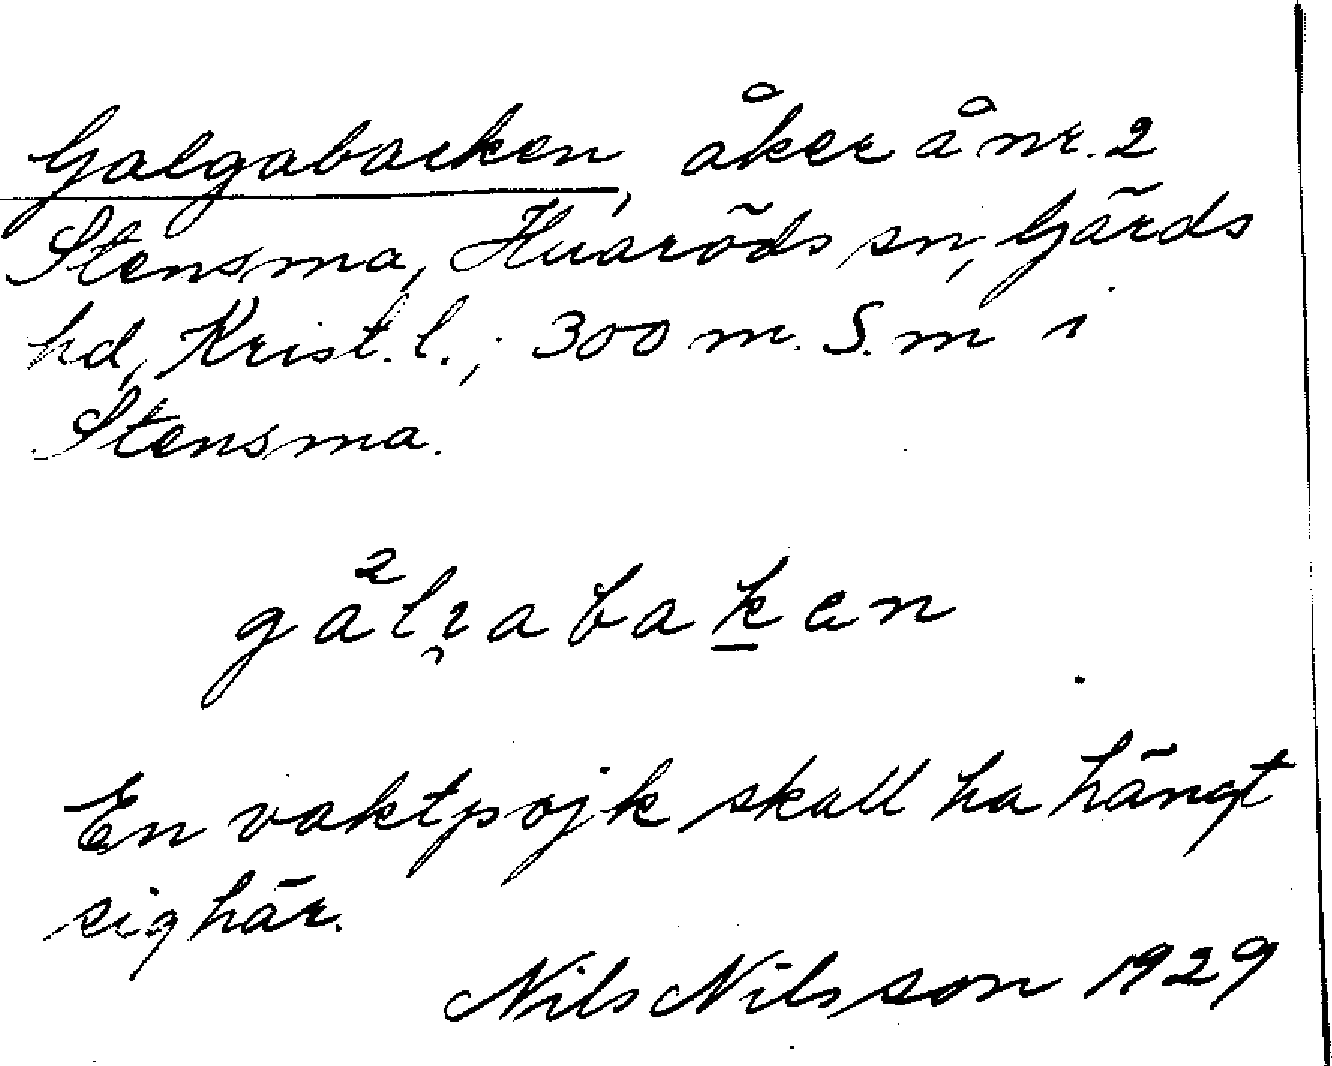 Galgabacken, åker å nr. 2
Stensma, Huaröds sn, Gärds
hd, Krist. l.; 300 m. S. m i
Stensma.
En vaktpojk skall ha hängt
sig här.
Nils Nilsson 1929